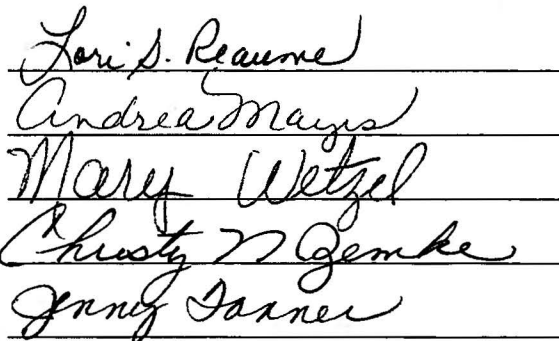 Lori S. Reaume
Andrea Mayes
Mary Wetzel
Christy N Zemke
Jenny Tanner